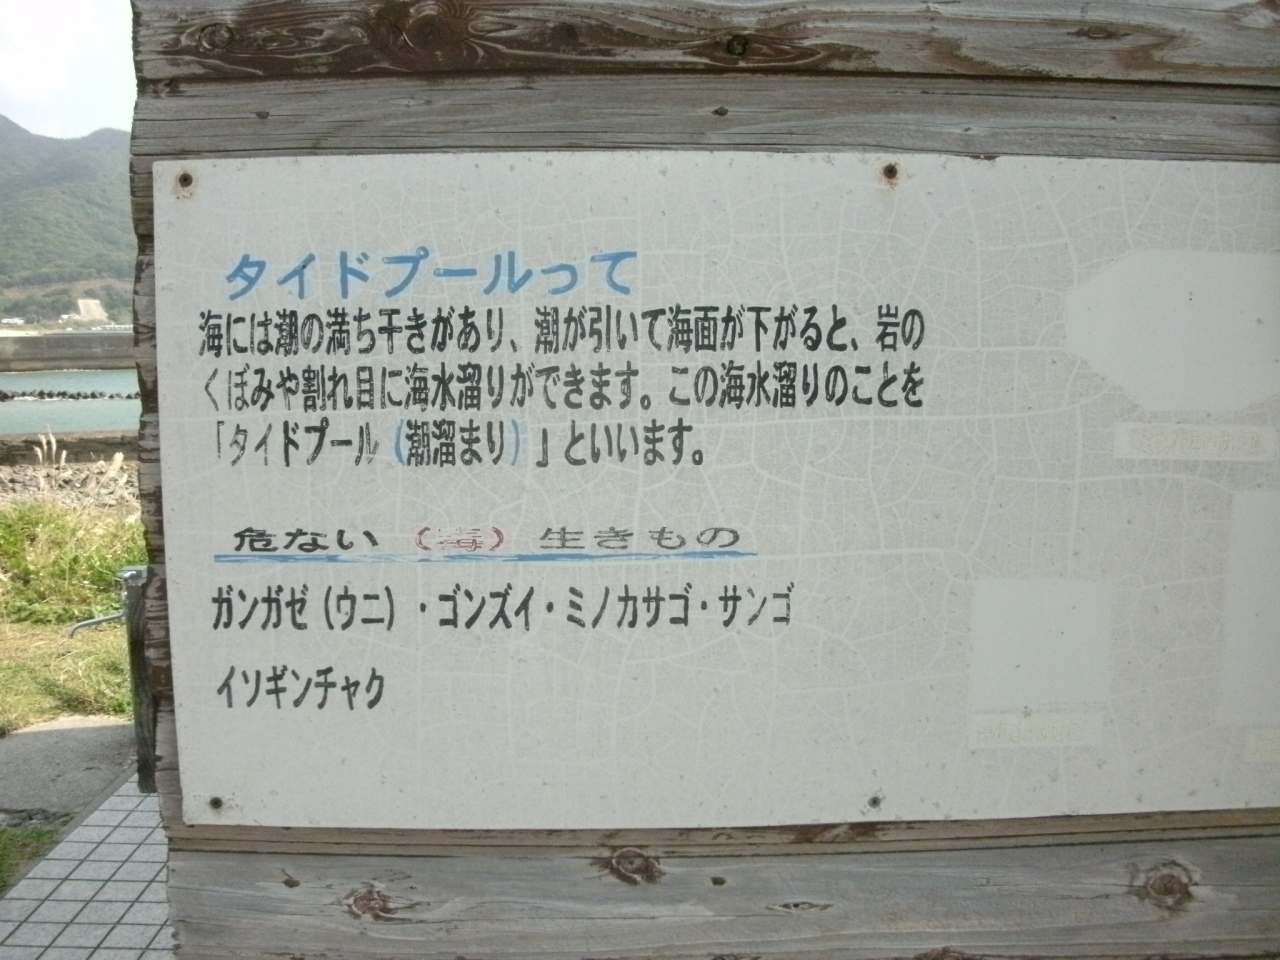 タイドプールって
海には潮の満ち干きがあり、潮が引いて海面が下がると、岩の
くぼみや割れ目に海水溜りができます。この海水溜りのことを
「タイドプール（潮溜まり）」といいます。
危ない（毒）生きもの
ガンガゼ（ウニ）・ゴンズイ・ミノカサゴ・サンゴ
イソギンチャク